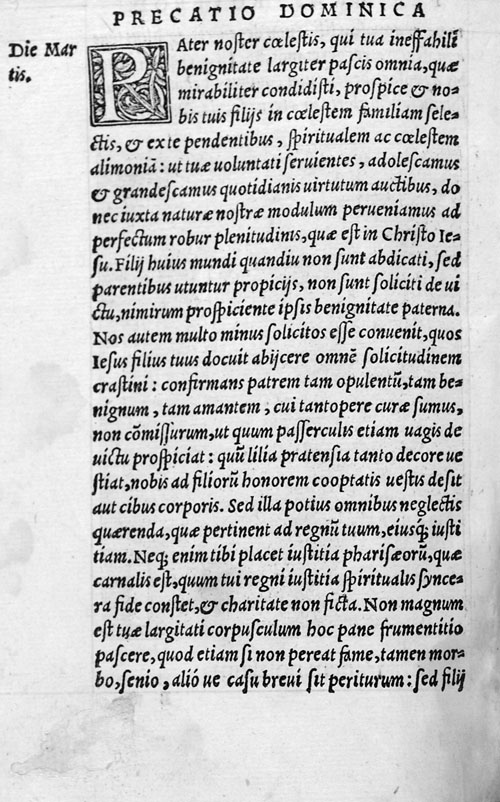 PRECATIO DOMINICA
Die Mar
tis.
PAter noster cœlestis, qui tua ineffabili
benignitate largiter pascis omnia, quæ
mirabiliter condidisti, prospice & no-
bis tuis filijs in cœlestem familiam sele-
ctis, & ex te pendentibus, spiritualem ac cœlestem
alimoniā: ut tuæ uoluntati seruientes, adolescamus
& grandescamus quotidianis uirtutum auctibus, do
nec iuxta naturæ nostræ modulum perueniamus ad
perfectum robur plenitudinis, quæ est in Christo Ie-
su. Filij huius mundi quandiu non sunt abdicati, sed
parentibus utuntur propicijs, non sunt soliciti de ui
ctu, nimirum prospiciente ipsis benignitate paterna.
Nos autem multo minus solicitos esse conuenit, quos
Iesus filius tuus docuit abijcere omnē solicitudinem
crastini: confirmans patrem tam opulentū, tam be-
nignum, tam amantem, cui tantopere curæ sumus,
non cōmissurum, ut quum passerculis etiam uagis de
uictu prospiciat: quū lilia pratensia tanto decore ue
stiat, nobis ad filiorū honorem cooptatis uestis desit
aut cibus corporis. Sed illa potius omnibus neglectis
quærenda, quæ pertinent ad regnū tuum, eiusq; iusti
tiam. Neq; enim tibi placet iustitia pharisæorū, quæ
carnalis est, quum tui regni iustitia spiritualis synce-
ra fide constet, & charitate non ficta. Non magnum
est tuæ largitati corpusculum hoc pane frumentitio
pascere, quod etiam si non pereat fame, tamen mor-
bo, senio, alió ue casu breui sit periturum: sed filij